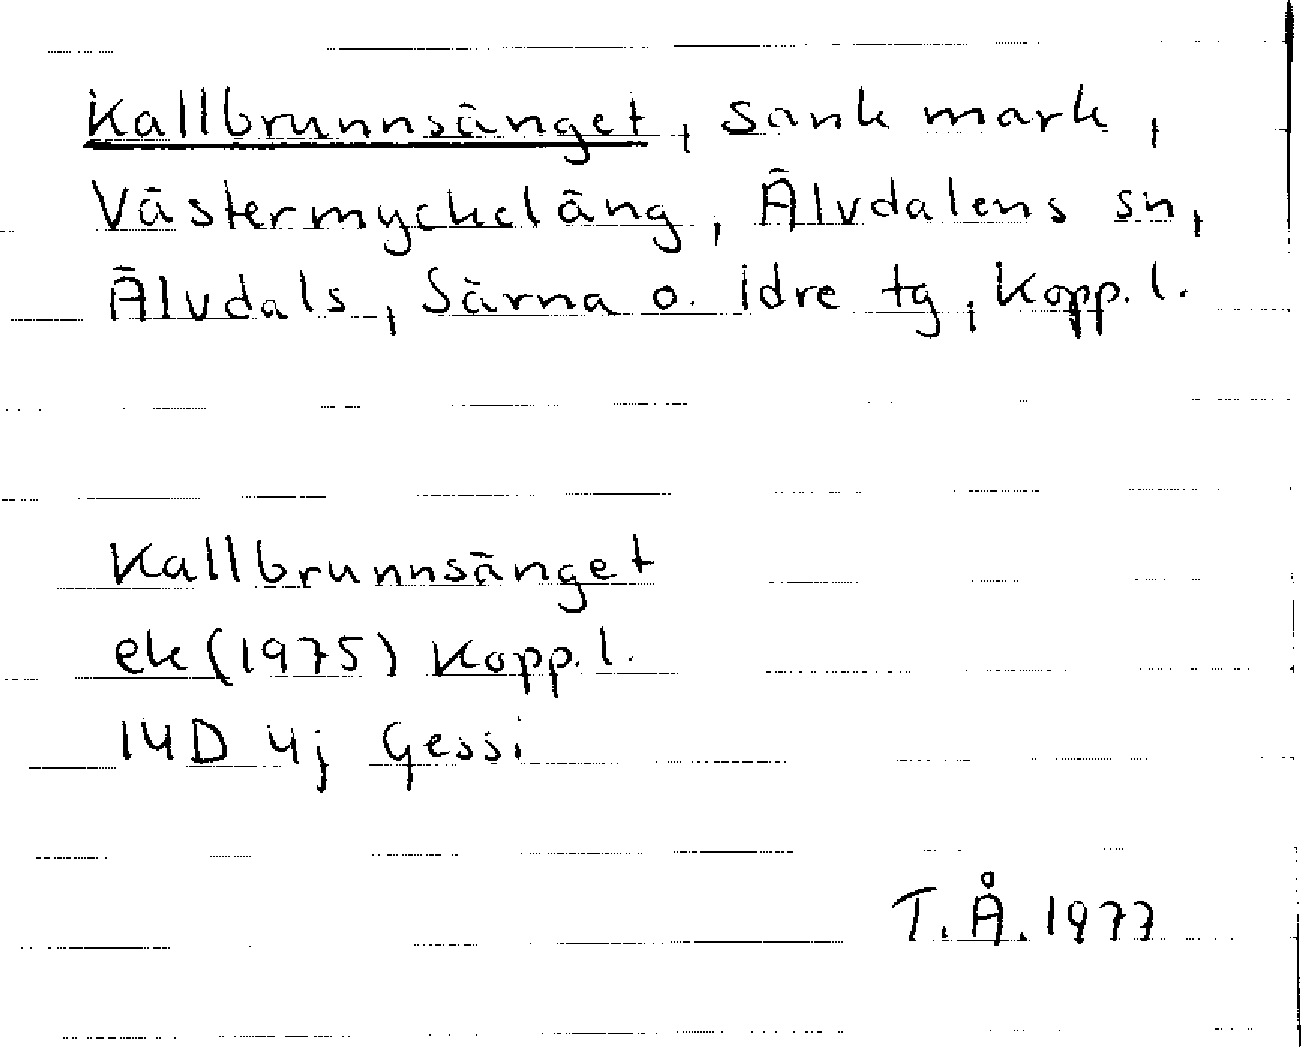 Kallbrunnsänget, sank mark,
Västermyckeläng, Älvdalens sn,
Älvdals, Särna o. Idre tg, Kopp. l.
Kallbrunnsänget
ek (1975) Kopp. l.
14D 4j Gessi
T.Å. 1977